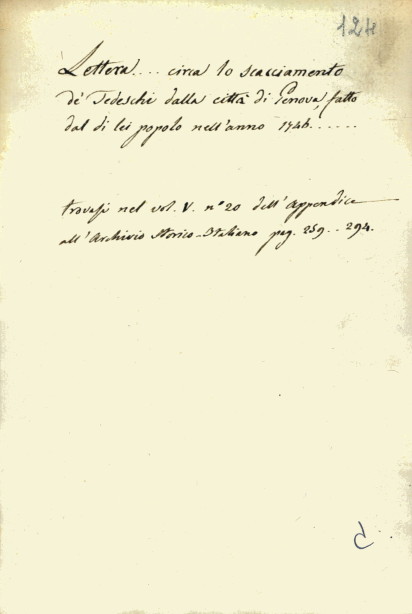 124
Lettera.... circa lo scacciamento
de' Tedeschi dalla città di Genova, fatto
dal di lei popolo nell'anno 1746......
trovasi nel vol. V. n° 20 dell'Appendice
all'Archivio Storico-Italiano pag. 259.. 294.